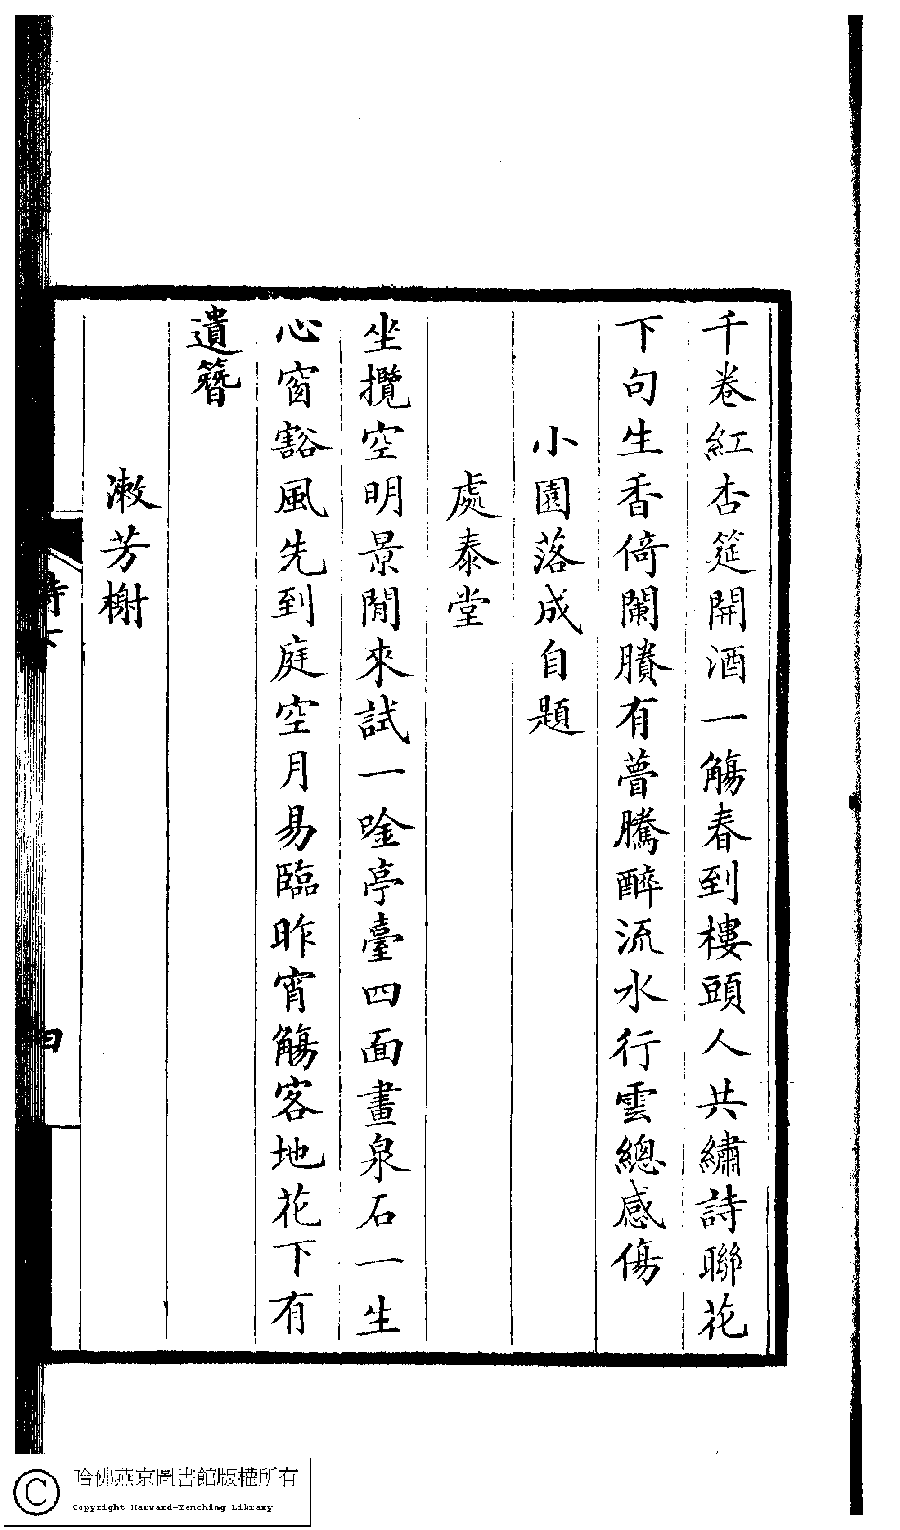 千卷紅杏筵開酒一觴春到樓頭人共繡詩聯花
下句生香倚闌賸有瞢騰醉流水行雲總感傷
小園落成自題
處泰堂
坐攬空明景閒來試一唫亭臺四面畫泉石一生
心窗豁風先到庭空月易臨昨宵觴客地花下有
遺簪
漱芳榭
哈佛燕京圖書館版權所有
Copyright Harvard-Yenching Library